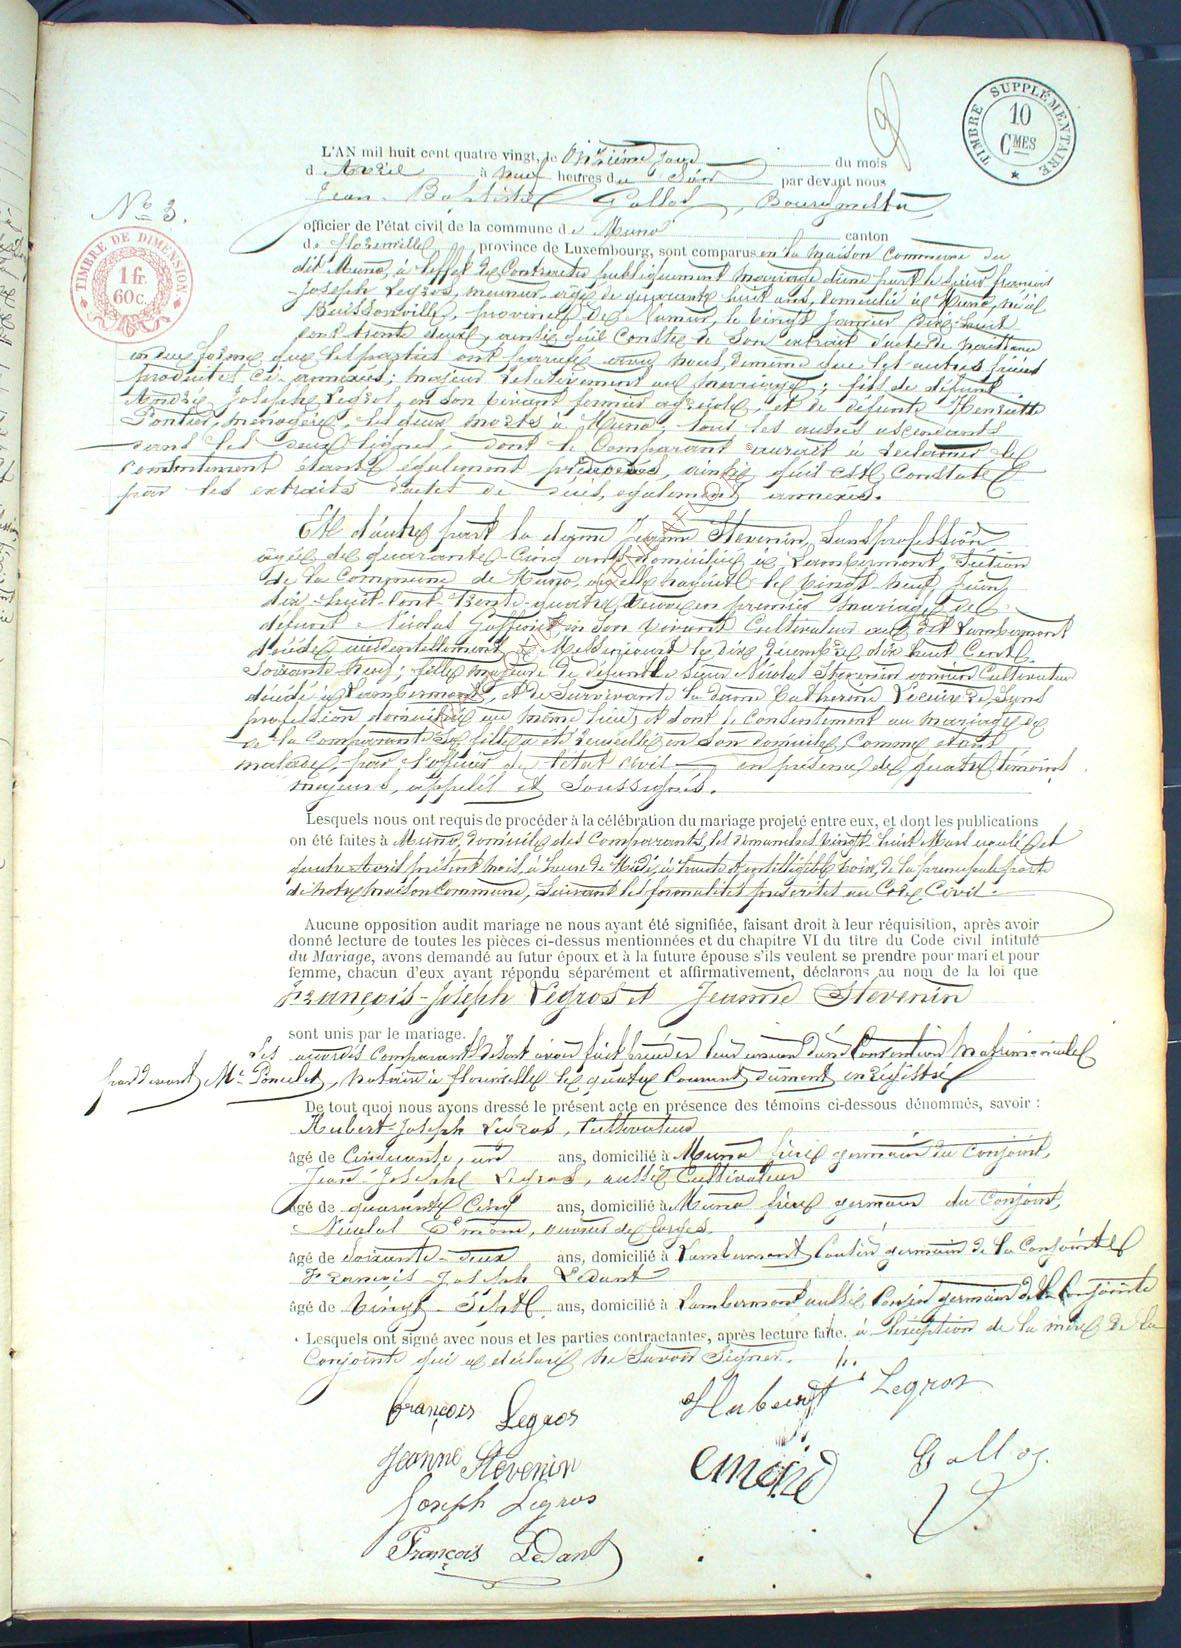 TIMBRE SUPPLÉMENTAIRE
10
CMES
L'AN mil huit cent quatre vingt, le onzième jour du mois
d'Avril à neuf heures du Soir par devant nous
Jean-Baptiste Gallos, Bourgmestre,
N° 3.
officier de l'état civil de la commune de Muno canton
TIMBRE DE DIMENSION
1 fr.
60 c.
de florenville, province de Luxembourg, sont comparus en la maison Commune du
dit Muno, à l'effet de Contracter publiquement mariage d'une part le sieur françois
Joseph Legros, meunier, agé de quarante huit ans, domicilié à Muno, né à
Buissonville, province de Namur, le vingt Janvier dix-huit
cent trente deux, ainsi qu'il Conste de Son extrait d'acte de naissance
en due forme que les parties ont fournie avec nous, de même que les autres pièces
produites ci-annexées; majeur relativement au mariage; fils de défunt
André Joseph Legros, en son vivant fermier agricole, et de défunte Henriette
Pontier, ménagère, les deux morts à Muno; tous les autres ascendants
dans les deux lignes, dont le Comparant aurait à réclamer le
Consentement étant également prédécédés, ainsi qu'il est Constaté
par les extraits d'actes de décès, également annexés.
Et d'autre part la dame Jeanne Stevenin, Sans profession
agée de quarante-Cinq ans domiciliée à Lambermont, Section
de la Commune de Muno, où elle naquit le vingt neuf Juin
dix-huit-Cent-Trente-quatre, veuve en premier mariage de
défunt Nicolas en Son vivant Cultivateur au dit Lambermont
décédé accidentellement à Messincourt le dix décembre dix huit Cent
Soixante neuf; fille majeure de défunt le Sieur Nicolas Stevenin Cultivateur
décédé à Lambermont, et de Survivante la dame Catherine Sans
profession domiciliée au même lieu, et dont le Consentement au mariage de
de la Comparante Sa fille a été recueilli en Son domicile, Comme étant
malade, par l'officier de l'état civil en présence de quatre témoins
majeurs, appelés et Soussignés.
Lesquels nous ont requis de procéder à la célébration du mariage projeté entre eux, et dont les publications
on été faites à Muno, domicile des Comparants, les dimanches vingt huit Mars écoulé et
quatre Avril présent mois, à heure de Midi, à haute et intelligible voix, de la principale porte
de notre maison Commune, Suivant les formalités prescrites au Code Civil.
Aucune opposition audit mariage ne nous ayant été signifiée, faisant droit à leur réquisition, après avoir
donné lecture de toutes les pièces ci-dessus mentionnées et du chapitre VI du titre du Code civil intitulé
du Mariage, avons demandé au futur époux et à la future épouse s'ils veulent se prendre pour mari et pour
femme, chacun d'eux ayant répondu séparément et affirmativement, déclarons au nom de la loi que
François-Joseph Legros et Jeanne Stevenin
sont unis par le mariage.
Les Comparants disent avoir fait précéder leur union d'une Convention Matrimoniale
par devant Me Poncelet, notaire à florenville le quatre Courant dûment enregistré
De tout quoi nous avons dressé le présent acte en présence des témoins ci-dessous dénommés, savoir :
Hubert-Joseph Legros, Cultivateur
âgé de Cinquante, un ans, domicilié à Muno frère germain du Conjoint,
Jean-Joseph Legros, aussi Cultivateur
âgé de quarante Cinq ans, domicilié à Muno frère germain du Conjoint,
Nicolas Emond, ouvrier de forges,
âgé de Soixante-deux ans, domicilié à Lambermont Cousin germain de la Conjointe
François Joseph Ledant
âgé de Vingt-Sept ans, domicilié à Lambermont aussi Cousin germain de la Conjointe
Lesquels ont signé avec nous et les parties contractantes, après lecture faite. à l'exception de la mère de la
Conjointe qui a déclaré ne Savoir Signer.
françois Legros
h. Legros
Hubert
Jeanne Stévenin
Emond
Gallos.
Joseph Legros
François Ledant